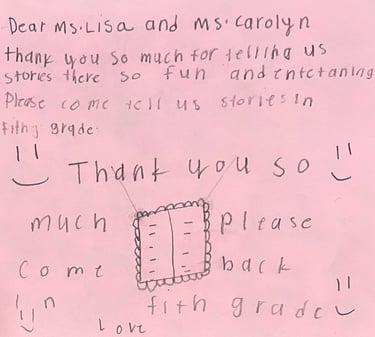 Dear Ms. Lisa and Ms. Carolyn
thank you so much for telling us
stories there so fun and entetaning
Please come tell us stories in
fithy grade.
Thank you so
much Please
come back
in fith grade
Love